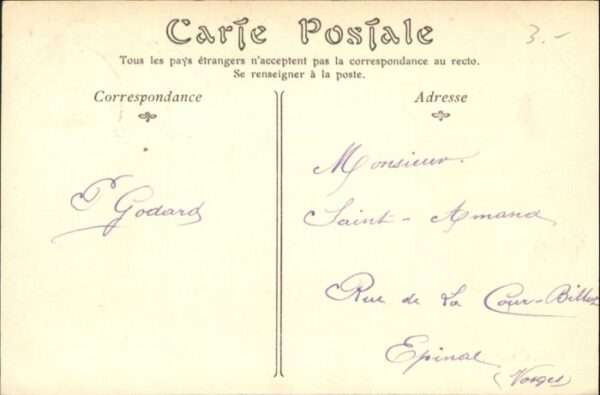 Carte Postale
3.-
Tous les pays étrangers n'acceptent pas la correspondance au recto.
Se renseigner à la poste.
Correspondance
Adresse
P Godard
Monsieur
Saint-Amand
Rue de La Cour-Billot
Epinal
(Vosges)